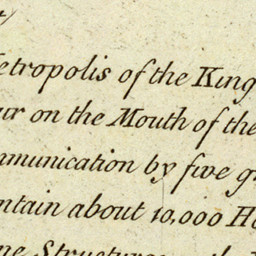 etropolis of the King
ur on the Mouth of the
mmunication by five g
ntain about 10,000 Ho
ne Structures